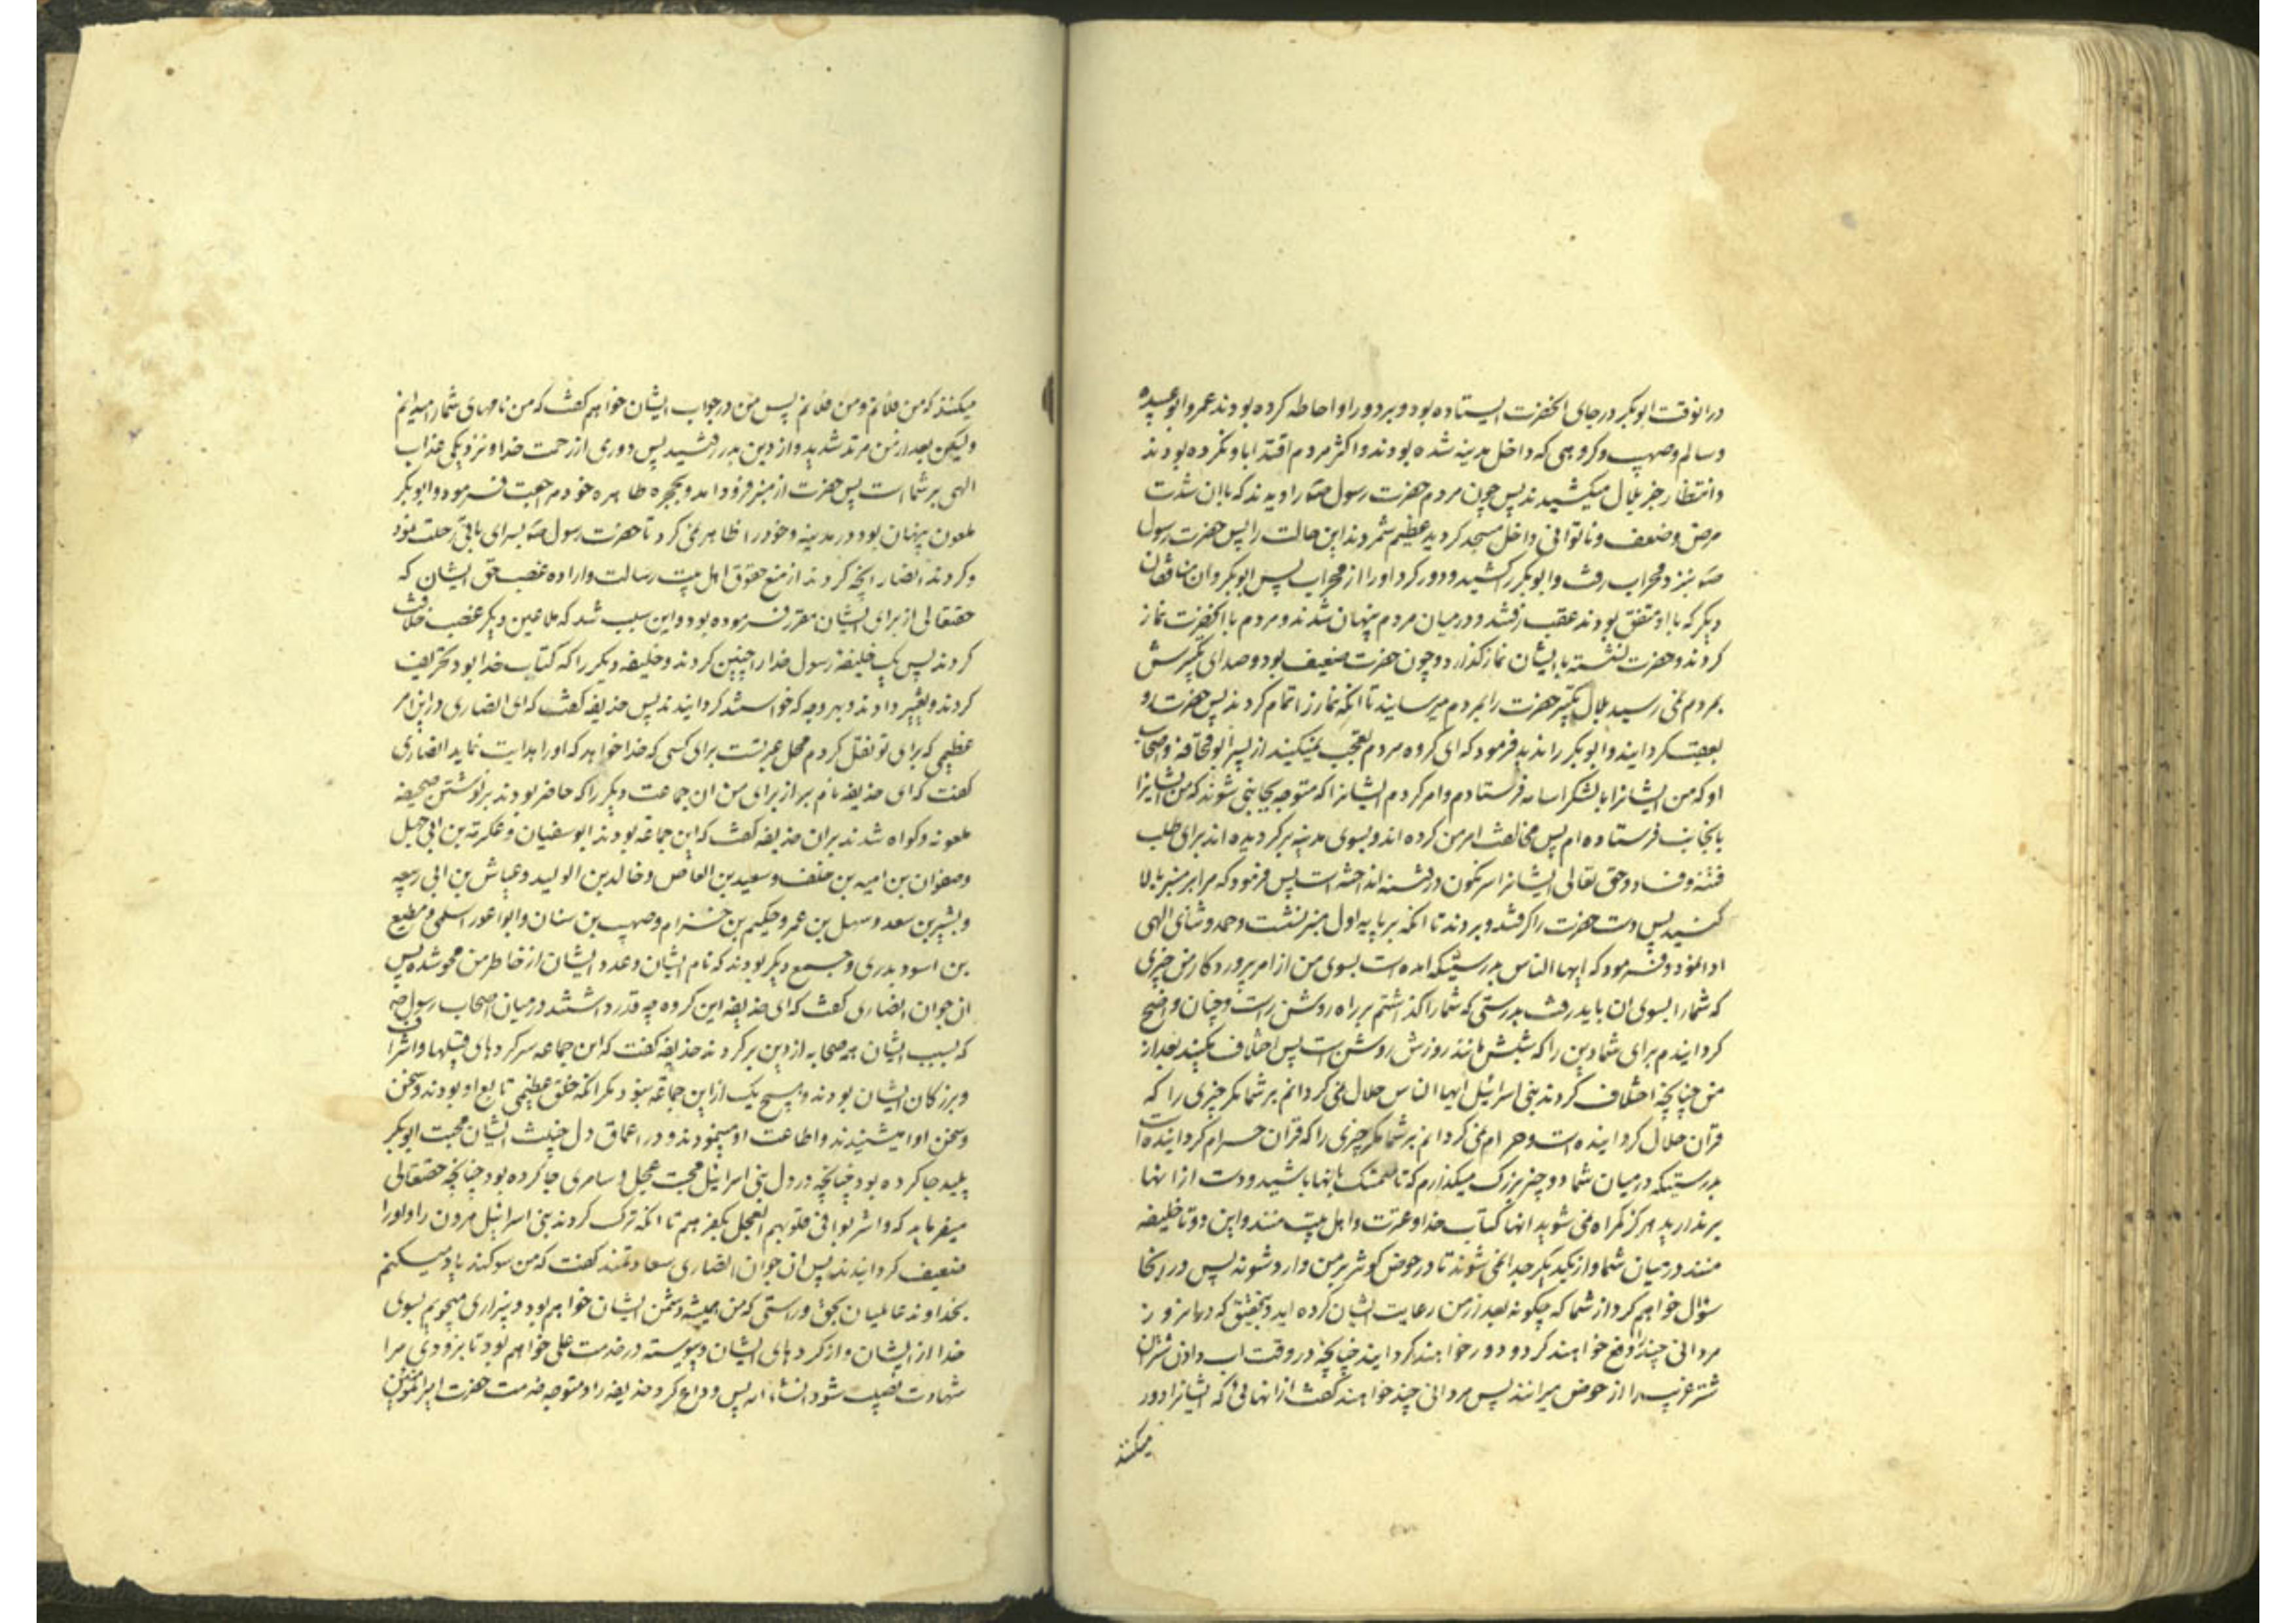 درانوقت ابوبکر در جای انحضرت ایستاده بود و بر دور او احاطه کرده بودند عمر و ابو عبیده
و سالم و صهیب و کروهی که داخل مدینه شده بودند و اکثر مردم اقتدا باو نکرده بودند
و انتظار خبر بلال میکشیدند پس چون مردم حضرت رسول صه را دیدند که باان شدت
مرض و ضعف و ناتوانی داخل مسجد کردید عظیم شمردند این حالت را پس حضرت رسول
صه بنزد محراب رفت و ابوبکر را کشید و دور کرد او را از محراب پس ابوبکر و ان منافقان
دیکر که با او متفق بودند عقب رفتند و در میان مردم پنهان شدند و مردم با انحضرت نماز
کردند و حضرت نشسته با ایشان نماز کذارد و چون حضرت ضعیف بود و صدای تکبیرش
بمردم نمی رسید بلال تکبیر حضرت را بمردم میرسانید تا انکه نماز را تمام کردند پس حضرت رو
بعقب کردانید و ابوبکر را ندید فرمود که ای کروه مردم تعجب نمیکنید از پسر ابو قحافه و اصحاب
او که من ایشانرا با لشکر اسامه فرستادم و امر کردم ایشانرا که متوجه بجانبی شوند که من ایشانرا
بانجانب فرستاده ام پس مخالفت امر من کرده اند و بسوی مدینه برکردیده اند برای طلب
فتنه و فساد و حق تعالی ایشانرا سرنکون در فتنه انداخته است پس فرمود که مرا بر منبر بالا
کنید پس دست حضرت را کرفتند و بردند تا انکه بر پایه اول منبر نشست و حمد و ثنای الهی
ادا نمود و فرمود که ایها الناس بدرستیکه امده است بسوی من از امر پروردکار من چیزی
که شما را بسوی ان باید رفت بدرستی که شما را کذاشتم بر راه روشن راست و چنان واضح
کردانیدم برای شما دین را که شبش مانند روزش روشن است پس اختلاف مکنید بعد از
من چنانچه اختلاف کردند بنی اسرائیل ایها الناس حلال نمی کردانم بر شما مکر چیزی را که
قرآن حلال کردانیده است و حرام نمی کردانم بر شما مکر چیزی را که قرآن حرام کردانیده است
بدرستیکه در میان شما دو چیز بزرک میکذارم که تا متمسک بانها باشید و دست از انها
بر ندارید هرکز کمراه نمی شوید انها کتاب خدا و عترت و اهل بیت منند و این دو تا خلیفه
منند در میان شما و از یکدیکر جدا نمی شوند تا در حوض کوثر بر من وارد شوند پس در انجا
سؤال خواهم کرد از شما که چکونه بعد از من رعایت ایشان کرده اید و بتحقیق که در ان روز
مردانی چند را دفع خواهند کرد و دور خواهند کردانید چنانچه در وقت اب دادن شتران
شتر غریب را از حوض میرانند پس مردانی چند خواهند کفت از انهائی که ایشانرا دور
میکنند
میکنند که من فلانم و من فلانم پس من در جواب ایشان خواهم کفت که من نامهای شما را میدانم
ولیکن بعد از من مرتد شدید و از دین بدر رفتید پس دوری از رحمت خدا و نزدیکی عذاب
الهی بر شما است پس حضرت از منبر فرود امد و بحجره طاهره خود مراجعت فرمود و ابوبکر
ملعون پنهان بود در مدینه و خود را ظاهر نمی کرد تا حضرت رسول صه بسرای باقی رحلت نمود
و کردند انصار انچه کردند از منع حقوق اهل بیت رسالت و اراده غصب حق ایشان که
حقتعالی از برای ایشان مقرر فرموده بود و این سبب شد که ملاعین دیکر غصب خلافت
کردند پس یک خلیفه رسول خدا را چنین کردند و خلیفه دیکر را که کتاب خدا بود تحریف
کردند و تغییر دادند و بهر وجه که خواستند کردانیدند پس حذیفه کفت که ای انصاری در این امر
عظیمی که برای تو نقل کردم محل عبرتست برای کسی که خدا خواهد که او را هدایت نماید انصاری
کفت که ای حذیفه نام بر از برای من ان جماعت دیکر را که حاضر بودند بر نوشتن صحیفه
ملعونه و کواه شدند بران حذیفه کفت که این جماعه بودند ابوسفیان و عکرمة بن ابی جهل
و صفوان بن امیه بن خلف و سعید بن العاص و خالد بن الولید و عیاش بن ابی ربیعه
و بشیر بن سعد و سهیل بن عمرو حکیم بن خزام و صهیب بن سنان و ابو اعور اسلمی و مطیع
بن اسود بدری و جمع دیکر بودند که نام ایشان و عدد ایشان از خاطر من محو شده پس
ان جوان انصاری کفت که ای حذیفه این کروه چه قدر داشتند در میان اصحاب رسول صه
که بسبب ایشان همه صحابه از دین برکردند حذیفه کفت که این جماعه سرکردهای قبیلها و اشراف
و بزرکان ایشان بودند و هیچ یک از این جماعه نبود مکر انکه خلق عظیمی تابع او بودند و سخن
و سخن او را میشنیدند و اطاعت او مینمودند و در اعماق دل خبیث ایشان محبت ابوبکر
پلید جا کرده بود چنانچه در دل بنی اسرائیل محبت عجل و سامری جا کرده بود چنانچه حقتعالی
میفرماید که و اشربوا فی قلوبهم العجل بکفرهم تا انکه ترک کردند بنی اسرائیل هرون را و او را
ضعیف کردانیدند پس ان جوان انصاری سعادتمند کفت که من سوکند یاد میکنم
بخداوند عالمیان بحق و راستی که من همیشه دشمن ایشان خواهم بود و بیزاری میجویم بسوی
خدا از ایشان و از کردهای ایشان و پیوسته در خدمت علی خواهم بود تا بزودی مرا
شهادت نصیب شود انشاء الله پس وداع کرد حذیفه را و متوجه خدمت حضرت امیرالمؤمنین